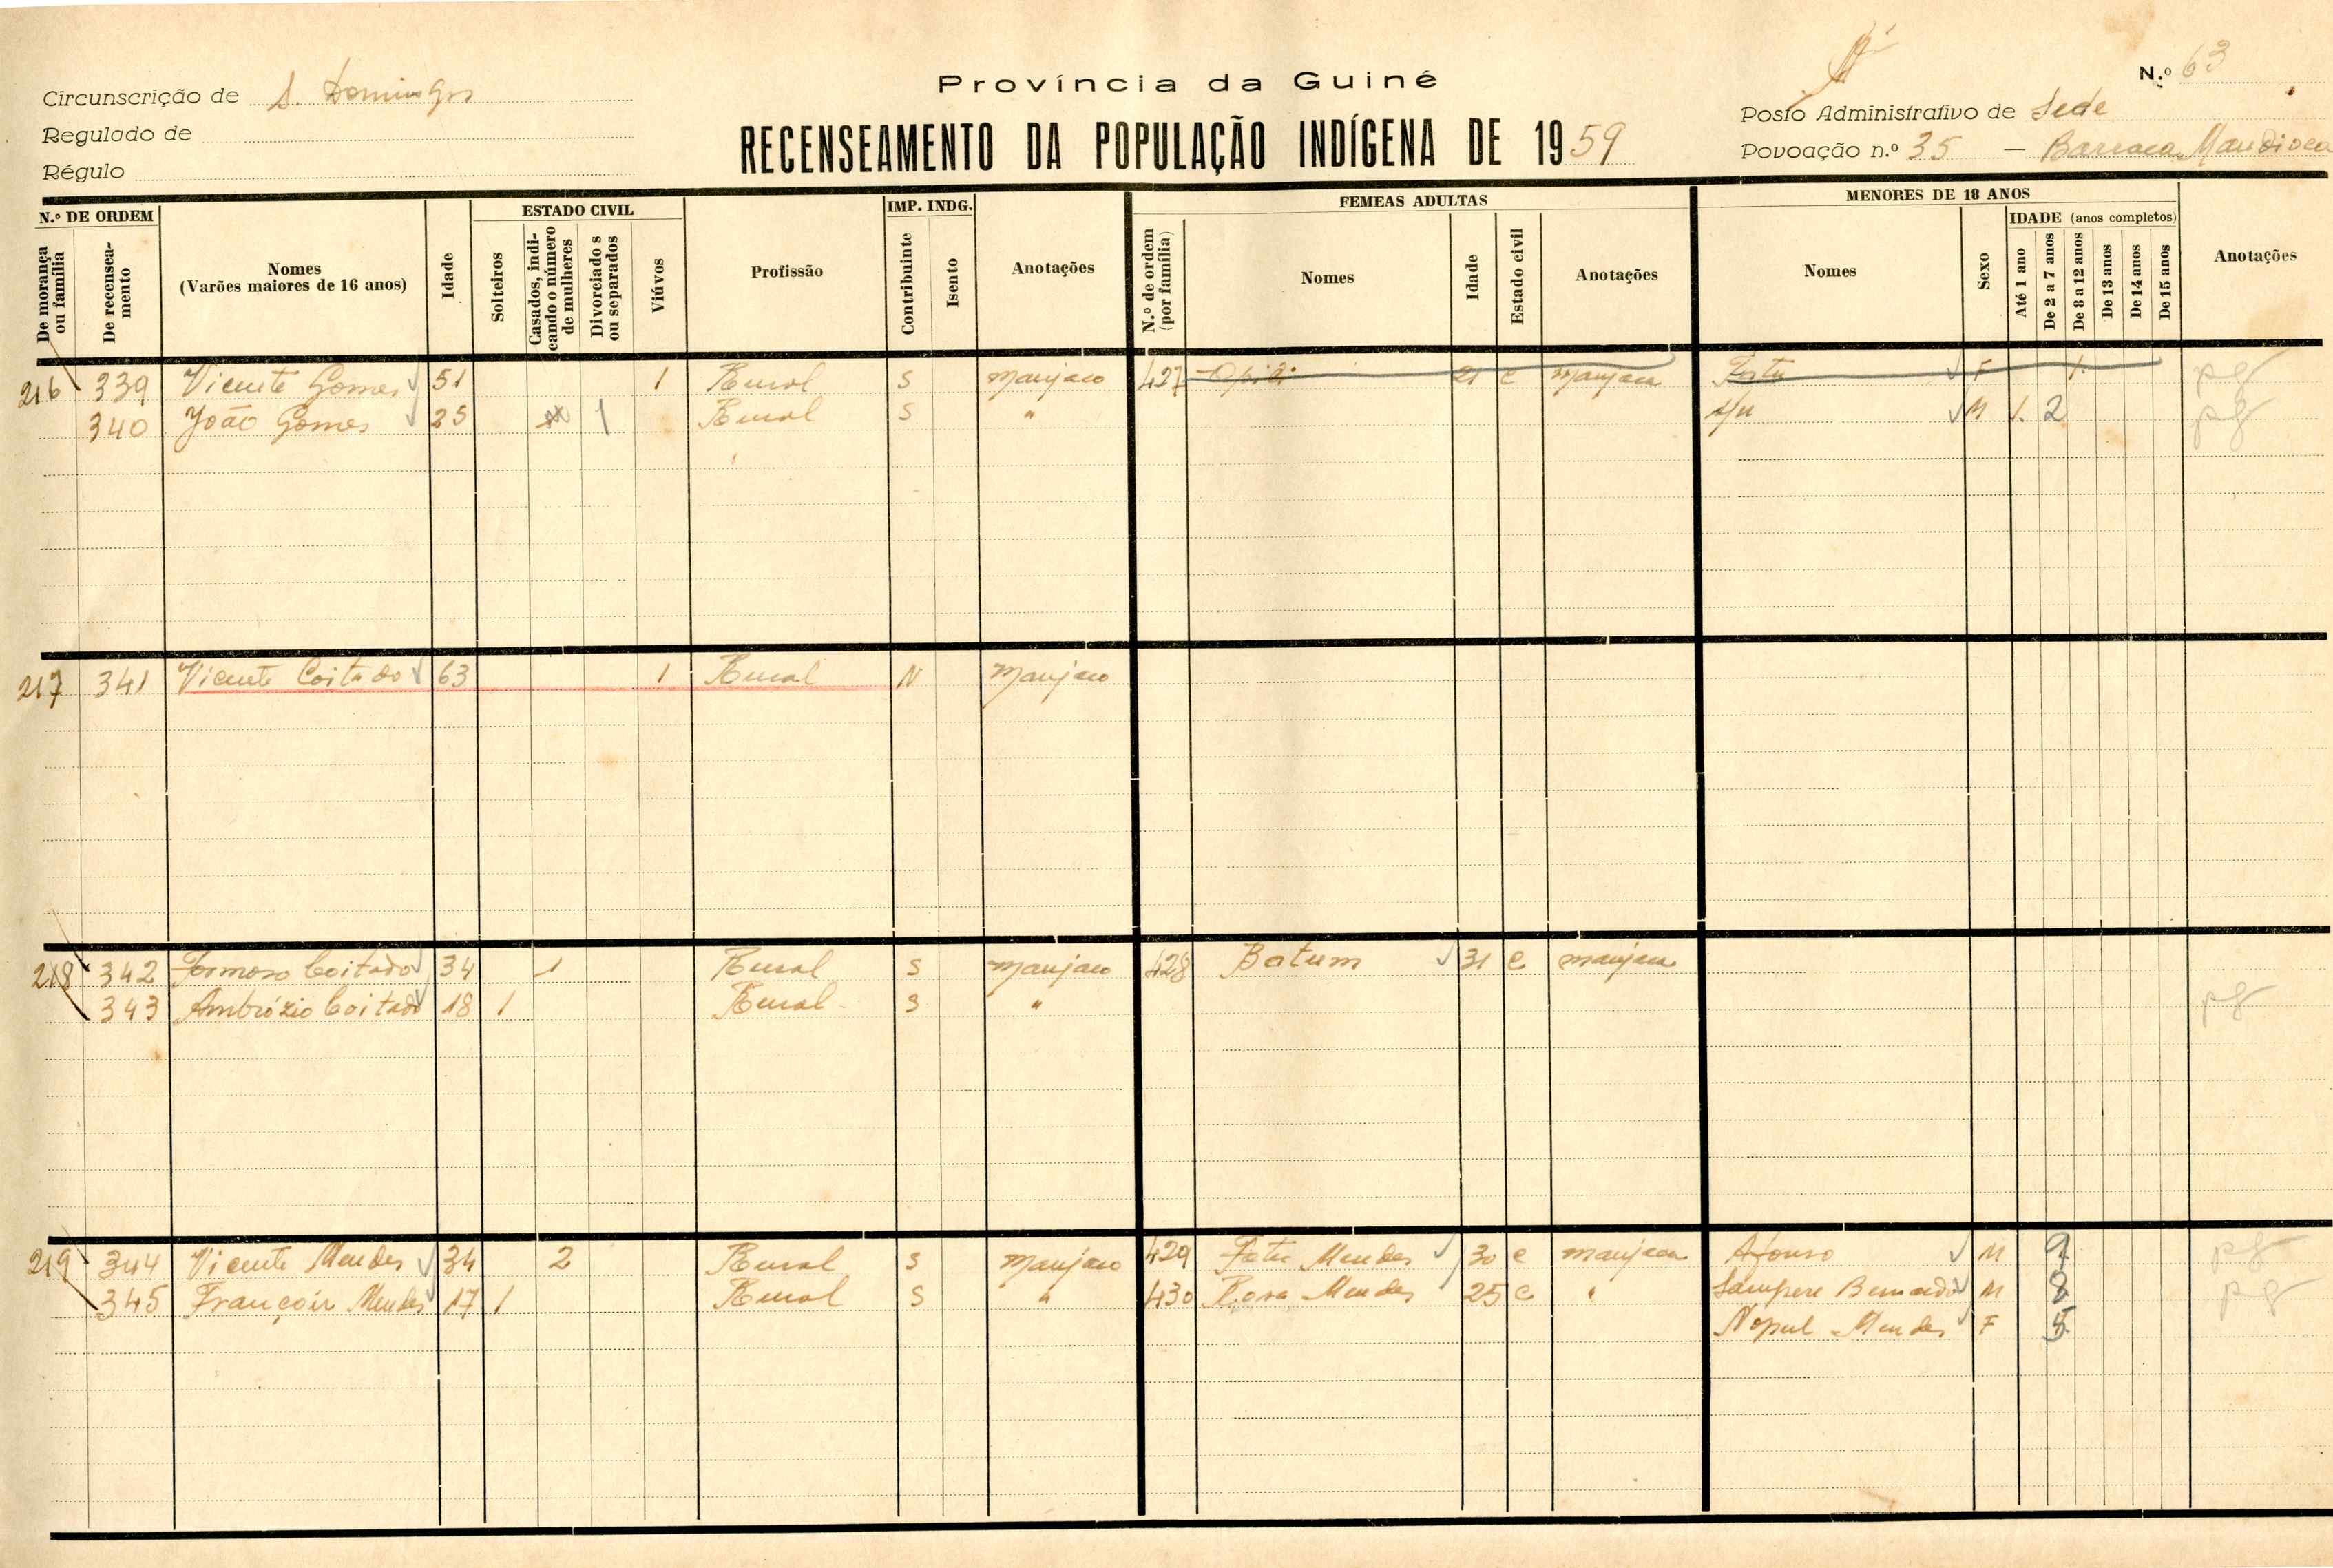 Província da Guiné
N.º 63
Circunscrição de S. Domingos
Posto Administrativo de Sede
Regulado de
RECENSEAMENTO DA POPULAÇÃO INDÍGENA DE 1959
Povoação n.º 35 — Barraca Mandioca
Régulo
N.º DE ORDEM
De morança ou família
De recenseamento
Nomes
(Varões maiores de 16 anos)
Idade
ESTADO CIVIL
Solteiros
Casados, indicando o número de mulheres
Divorciado s ou separados
Viúvos
Profissão
IMP. INDG.
Contribuinte
Isento
Anotações
FEMEAS ADULTAS
N.º de ordem (por família)
Nomes
Idade
Estado civil
Anotações
MENORES DE 18 ANOS
Nomes
Sexo
IDADE (anos completos)
Até 1 ano
De 2 a 7 anos
De 8 a 12 anos
De 13 anos
De 14 anos
De 15 anos
Anotações
216 339 Vicente Gomes 51 1 Rural S Manjaco 427 21 C Manjaca Fatu F 1 pg
340 João Gomes 25 1 Rural S " s/n M 1. 2 pg
217 341 Vicente Coitado 63 1 Rural N Manjaco
218 342 Formoso Coitado 34 1 Rural S Manjaco 428 Batum 31 C Manjaca
343 Ambrózio Coitado 18 1 Rural S " pg
219 344 Vicente Mendes 34 2 Rural S Manjaco 429 Fatu Mendes 30 C Manjaca Afonso M 9 pg
345 Françoir Mendes 17 1 Rural S " 430 Rosa Mendes 25 C " Sampere Bernardo M 8 pg
Nopul Mendes F 5